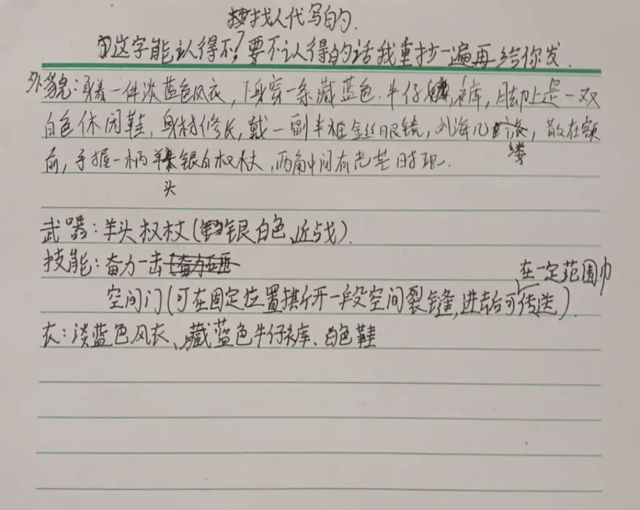 找人代写的.
这字能认得不?要不认得的话我重抄一遍再给你发.
外貌:身着一件淡蓝色风衣,下身穿一条藏蓝色牛仔裤,脚上是一双
白色休闲鞋,身材修长,戴一副半框金丝眼镜,刘海几缕,散在额
前,手握一柄羊头银白权杖,两角中间有光芒时现.
武器:羊头权杖(银白色,近战).
技能:奋力一击
在一定范围巾
空间门(可在固定位置撕开一段空间裂缝,进去后可传送).
衣:淡蓝色风衣、藏蓝色牛仔裤、白色鞋